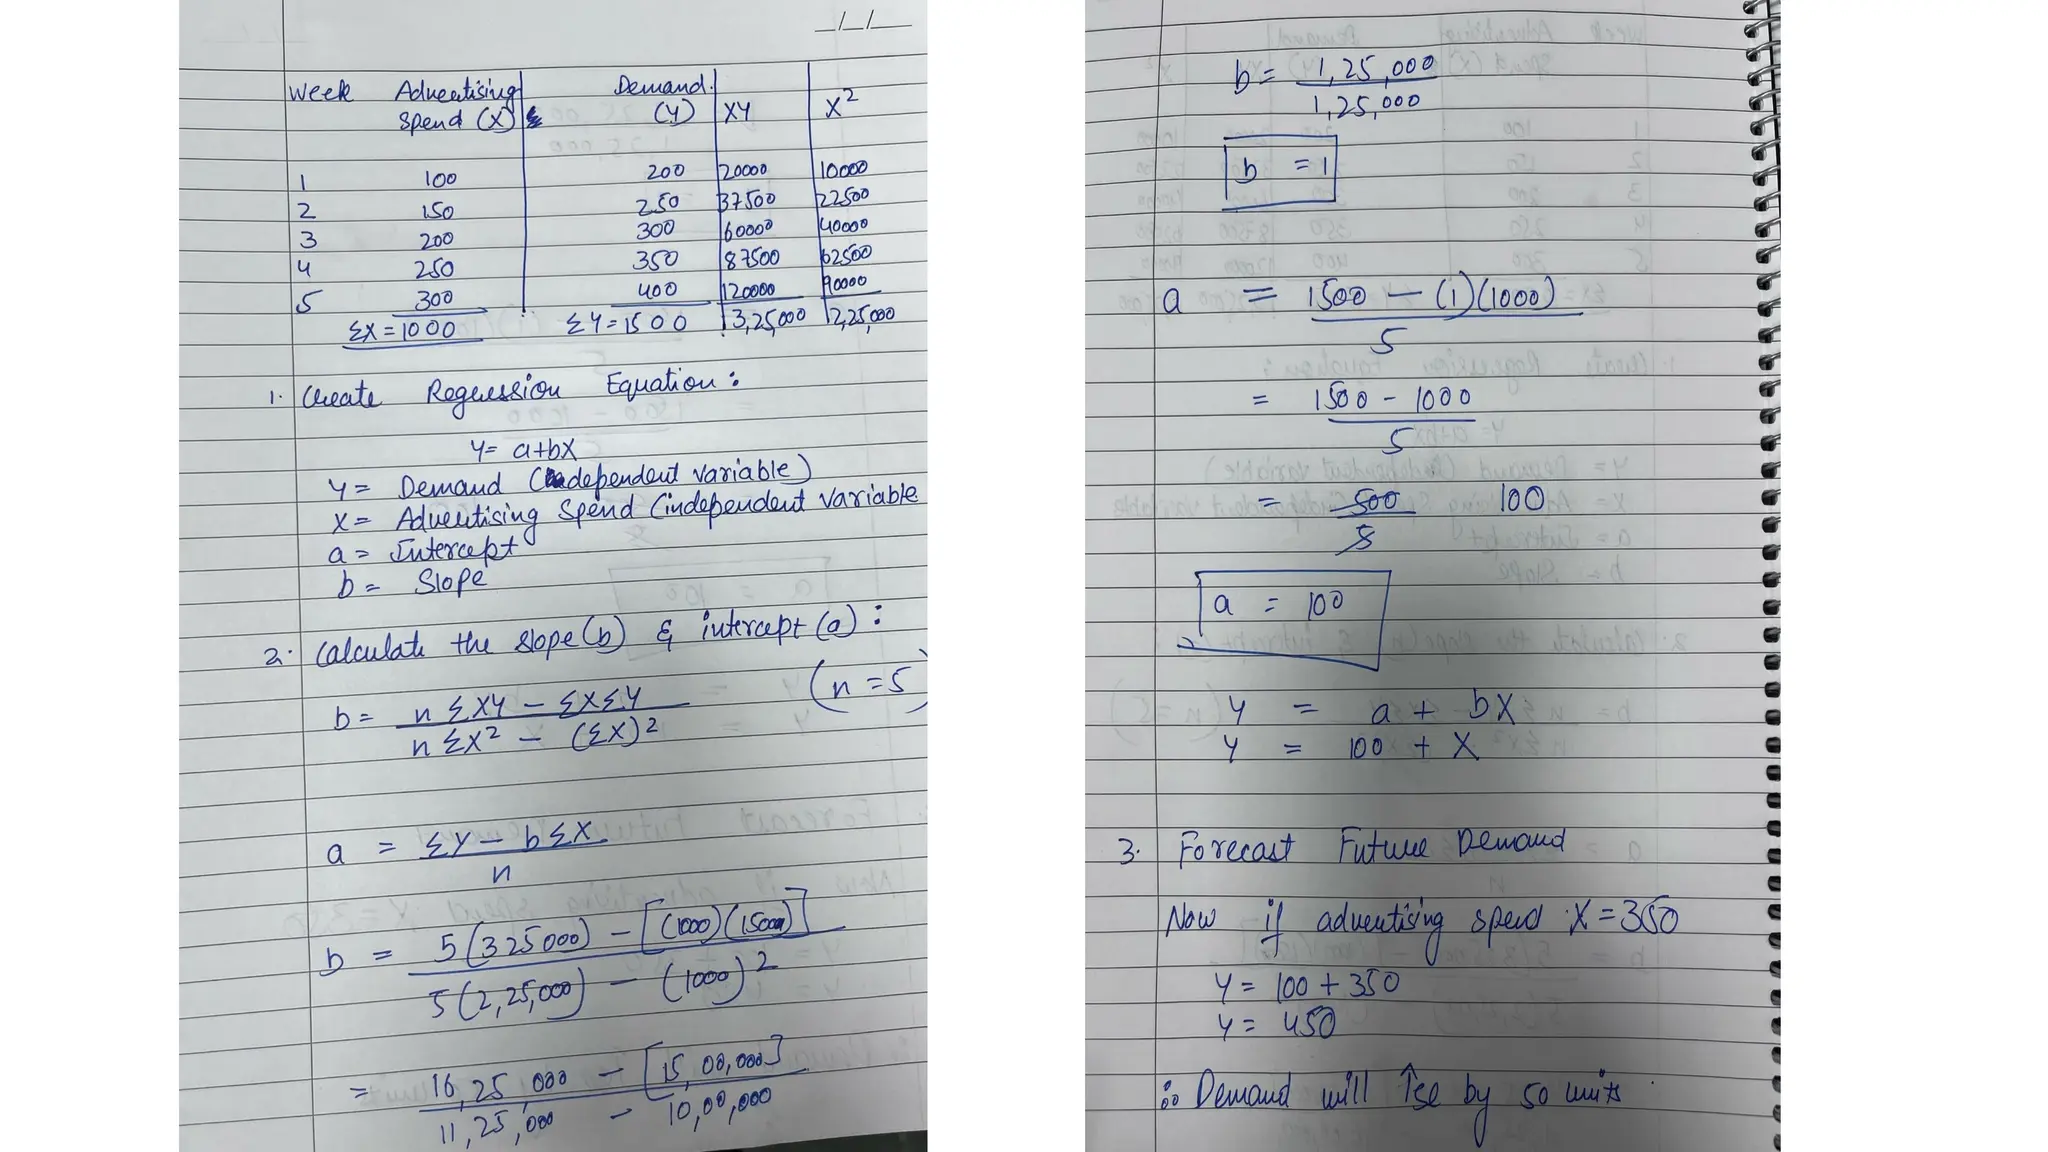 _/_/__
Week Advertising Spend (X) Demand (Y) XY X²
1 100 200 20000 10000
2 150 250 37500 22500
3 200 300 60000 40000
4 250 350 87500 62500
5 300 400 120000 90000
ΣX = 1000 ΣY = 1500 3,25,000 2,25,000
1. Create Regression Equation:
Y = a+bX
Y = Demand (dependent variable)
X = Advertising Spend (independent variable
a = Intercept
b = Slope
2. Calculate the slope (b) & intercept (a):
b = n ΣXY - ΣXΣY / n ΣX² - (ΣX)² (n = 5)
a = ΣY - bΣX / n
b = 5(325000) - [(1000)(1500)] / 5(2,25,000) - (1000)²
= 16,25,000 - [15,00,000] / 11,25,000 - 10,00,000
b = 1,25,000 / 1,25,000
b = 1
a = 1500 - (1)(1000) / 5
= 1500 - 1000 / 5
= 500 / 5 100
a = 100
Y = a + bX
Y = 100 + X
3. Forecast Future Demand
Now if advertising spend X = 350
Y = 100 + 350
Y = 450
∴ Demand will ↑se by 50 units.